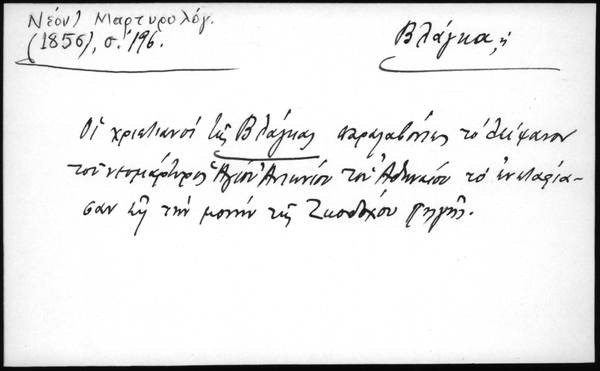 Νέον Μαρτυρολόγ.
(1856), σ. 196.
Βλάγκα, ἡ
Οἱ χριστιανοί τῆς Βλάγκας παραλαβόντες τό λείψανον
τοῦ νεομάρτυρος Ἁγίου Ἀντωνίου τοῦ Ἀθηναίου τό ἐνεταφία-
σαν εἰς τήν μονήν τῆς Ζωοδόχου πηγῆς.